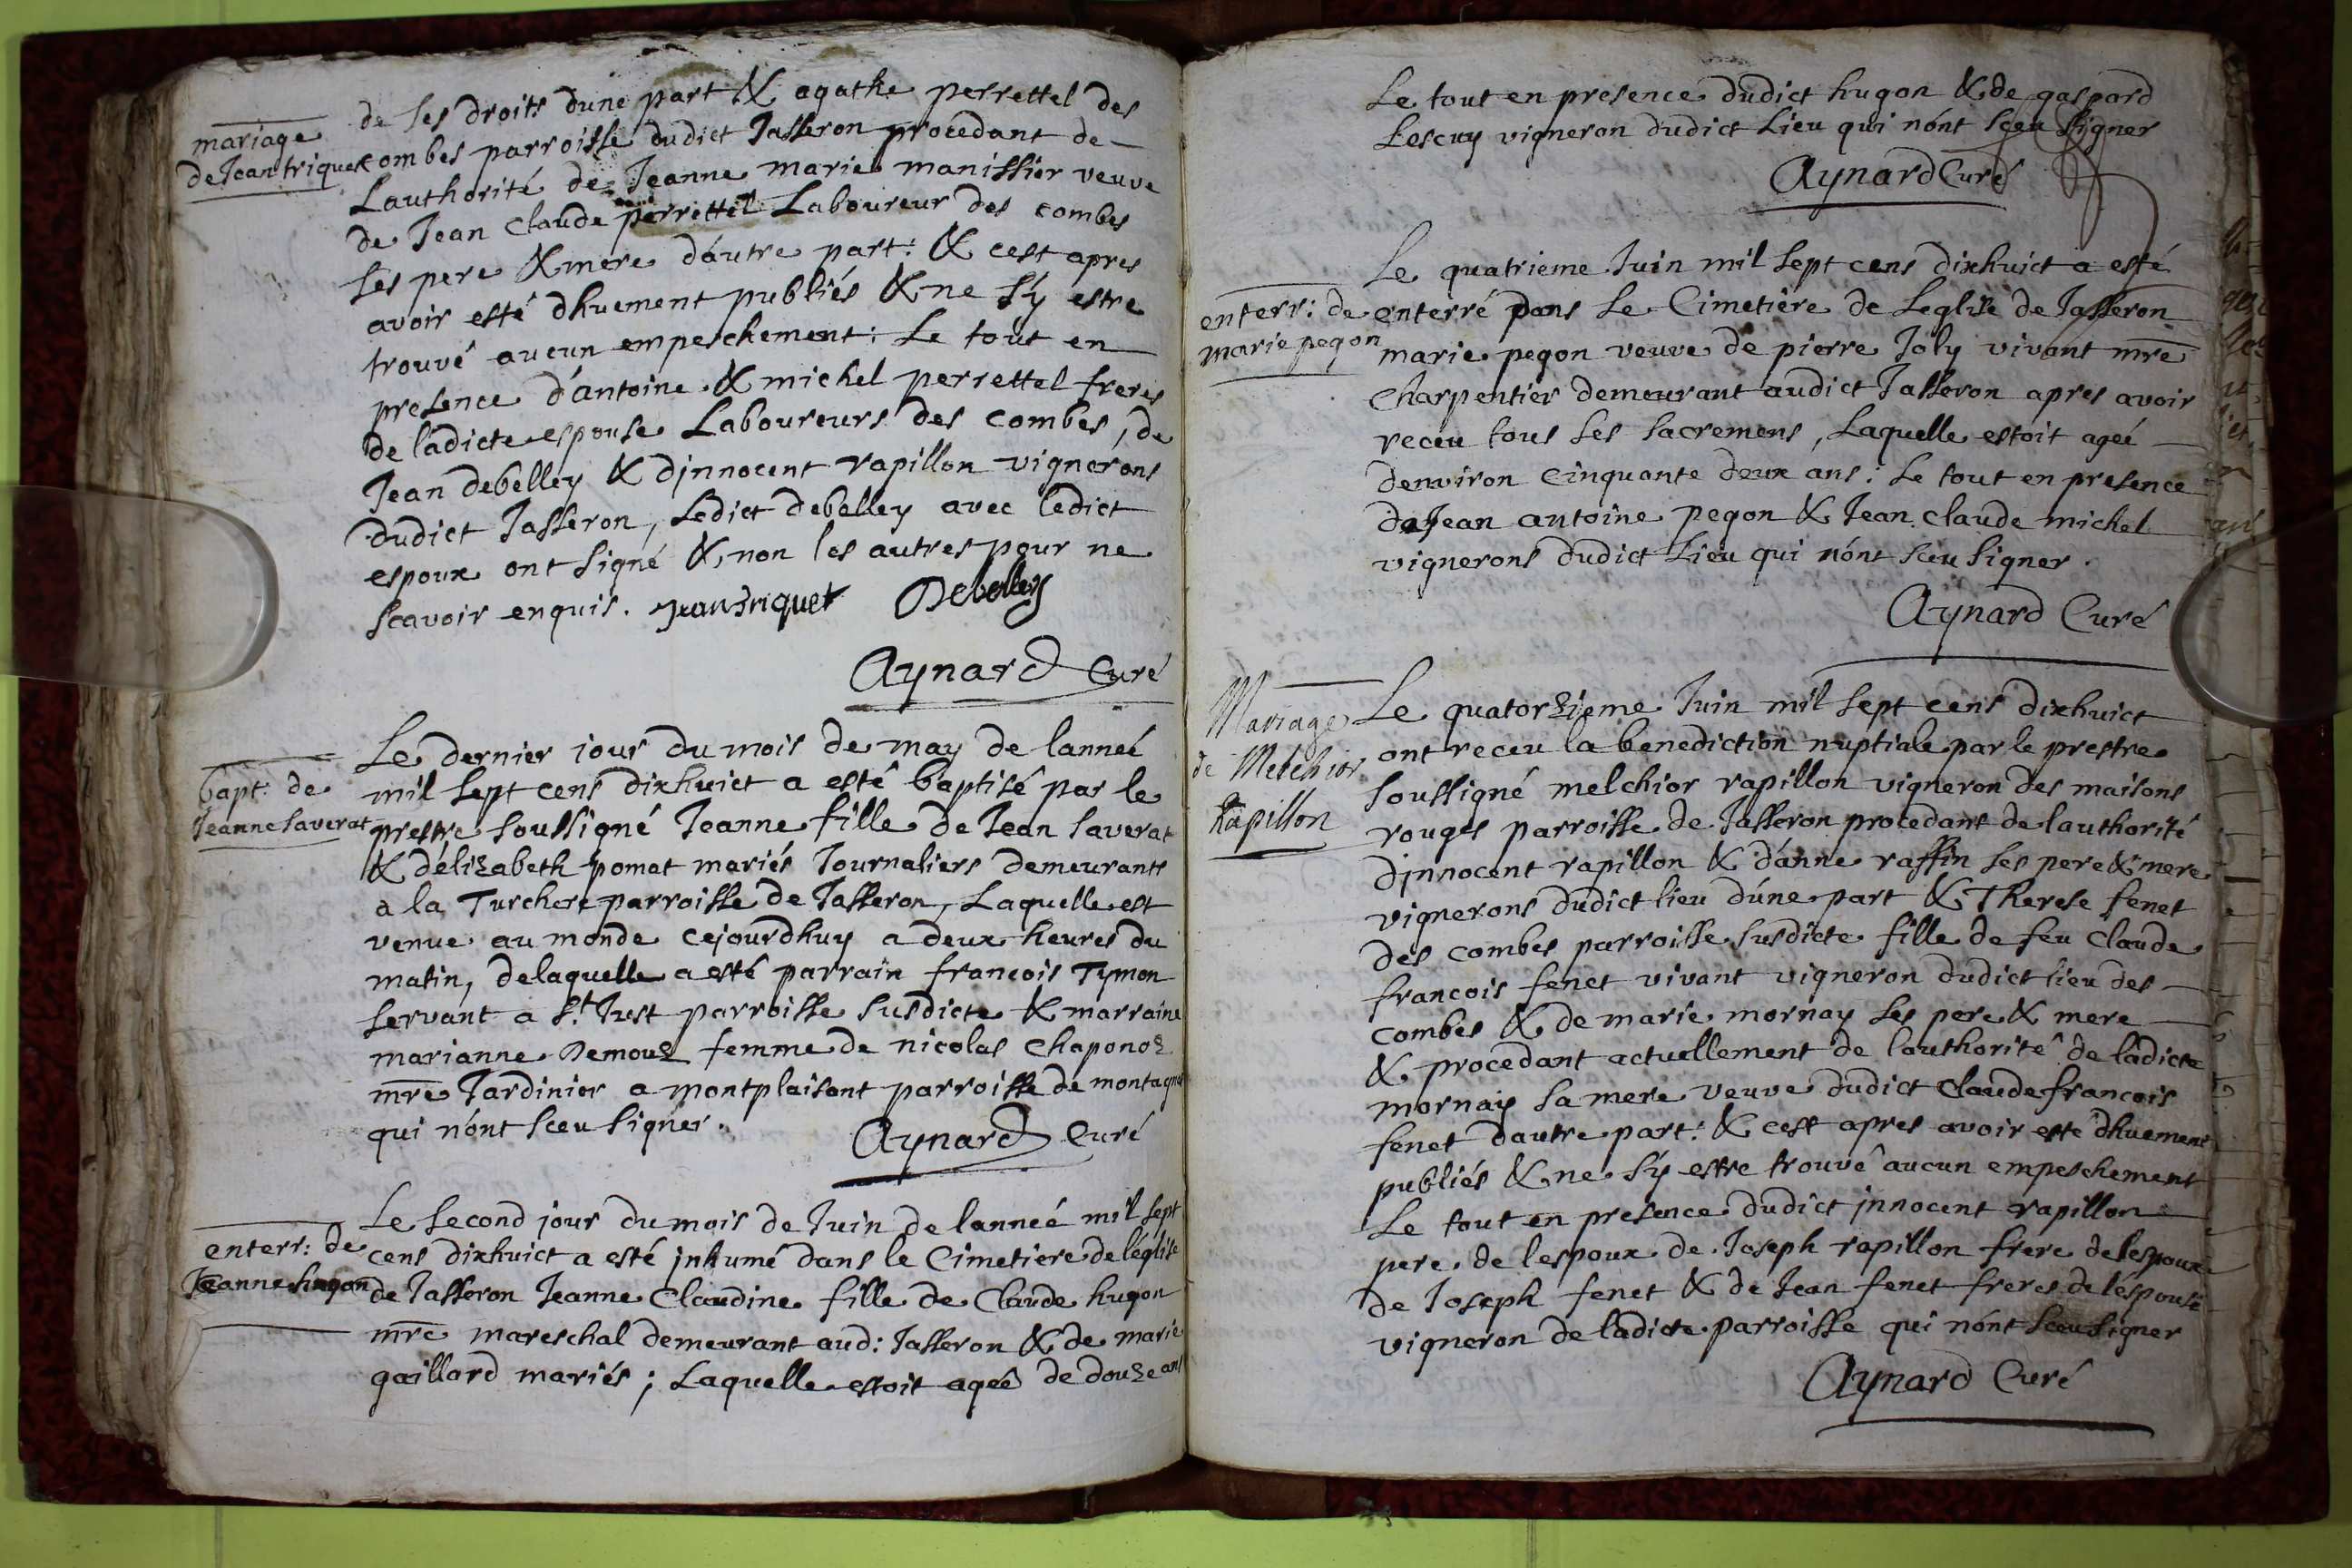 mariage
de Jean triquet
de ses droits dune part & agathe perrettel des
combes parroisse dudict Jasseron procedant de
Lauthorité de Jeanne marie manissier veuve
de Jean claude perrettel Laboureur des combes
ses pere & mere d'autre part: & cest apres
avoir esté dhuement publiés & ne s'y estre
trouvé aucun empeschement: Le tout en
presence d'antoine & michel perrettel freres
de ladicte espouse Laboureurs des combes, de
Jean debelley & d'jnnocent rapillon vignerons
dudict Jasseron, Ledict debelley avec ledict
espoux ont signé & non les autres pour ne
scavoir enquis. Jean triquet Debelley
Aynard Curé
bapt: de
Jeanne saverat
Le dernier jour du mois de may de lanneé
mil sept cens dixhuict a esté baptisé par le
prestre soussigné Jeanne fille de Jean saverat
& d'élizabeth pomat mariés Journaliers demeurants
a la Turchere parroisse de Jasseron, Laquelle est
venue au monde cejourdhuy a deux heures du
matin, delaquelle a esté parrain francois Tymon
servant a St. Just parroisse susdicte & marraine
marianne Demouz femme de nicolas chaponoz
mre Jardinier a montplaisant parroisse de montagna
qui n'ont sceu signer.
Aynard Curé
enterr: de
Jeanne hugon
Le second jour du mois de Juin de lanneé mil sept
cens dixhuict a esté jnhumé dans le Cimetiere de léglise
de Jasseron Jeanne Claudine fille de Claude hugon
mre mareschal demeurant aud: Jasseron & de marie
gaillard mariés; Laquelle estoit ageé de douze ans
Le tout en presence dudict hugon & de gaspard
Lescuy vigneron dudict Lieu qui n'ont sceu signer
Aynard Curé
enterr: de
marie pegon
Le quatrieme Juin mil sept cens dixhuict a esté
enterré dans le Cimetière de Leglise de Jasseron
marie pegon veuve de pierre Joly vivant mre
Charpentier demeurant audict Jasseron apres avoir
receu tous ses sacremens, Laquelle estoit ageé
denviron cinquante deux ans: Le tout en presence
de Jean antoine pegon & Jean claude michel
vignerons dudict Lieu qui n'ont sceu signer.
Aynard Curé
Mariage
de Melchior
Rapillon
Le quatorzieme Juin mil sept cens dixhuict
ont receu la benediction nuptiale par le prestre
soussigné melchior rapillon vigneron des maisons
rouges parroisse de Jasseron procedant de lauthorité
d'jnnocent rapillon & d'anne raffin ses pere & mere
vignerons dudict lieu d'une part & Therese fenet
des combes parroisse susdicte fille de feu Claude
francois fenet vivant vigneron dudict lieu des
combes & de marie mornay ses pere & mere
& procedant actuellement de lauthorité de ladicte
mornay sa mere veuve dudict Claude francois
fenet dautre part: & cest apres avoir esté dhuement
publiés & ne s'y estre trouvé aucun empeschement
Le tout en presence dudict jnnocent rapillon
pere de lespoux de Joseph rapillon frere de lespoux
de Joseph fenet & de Jean fenet freres de léspouse
vigneron de ladicte parroisse qui n'ont sceu signer
Aynard Curé